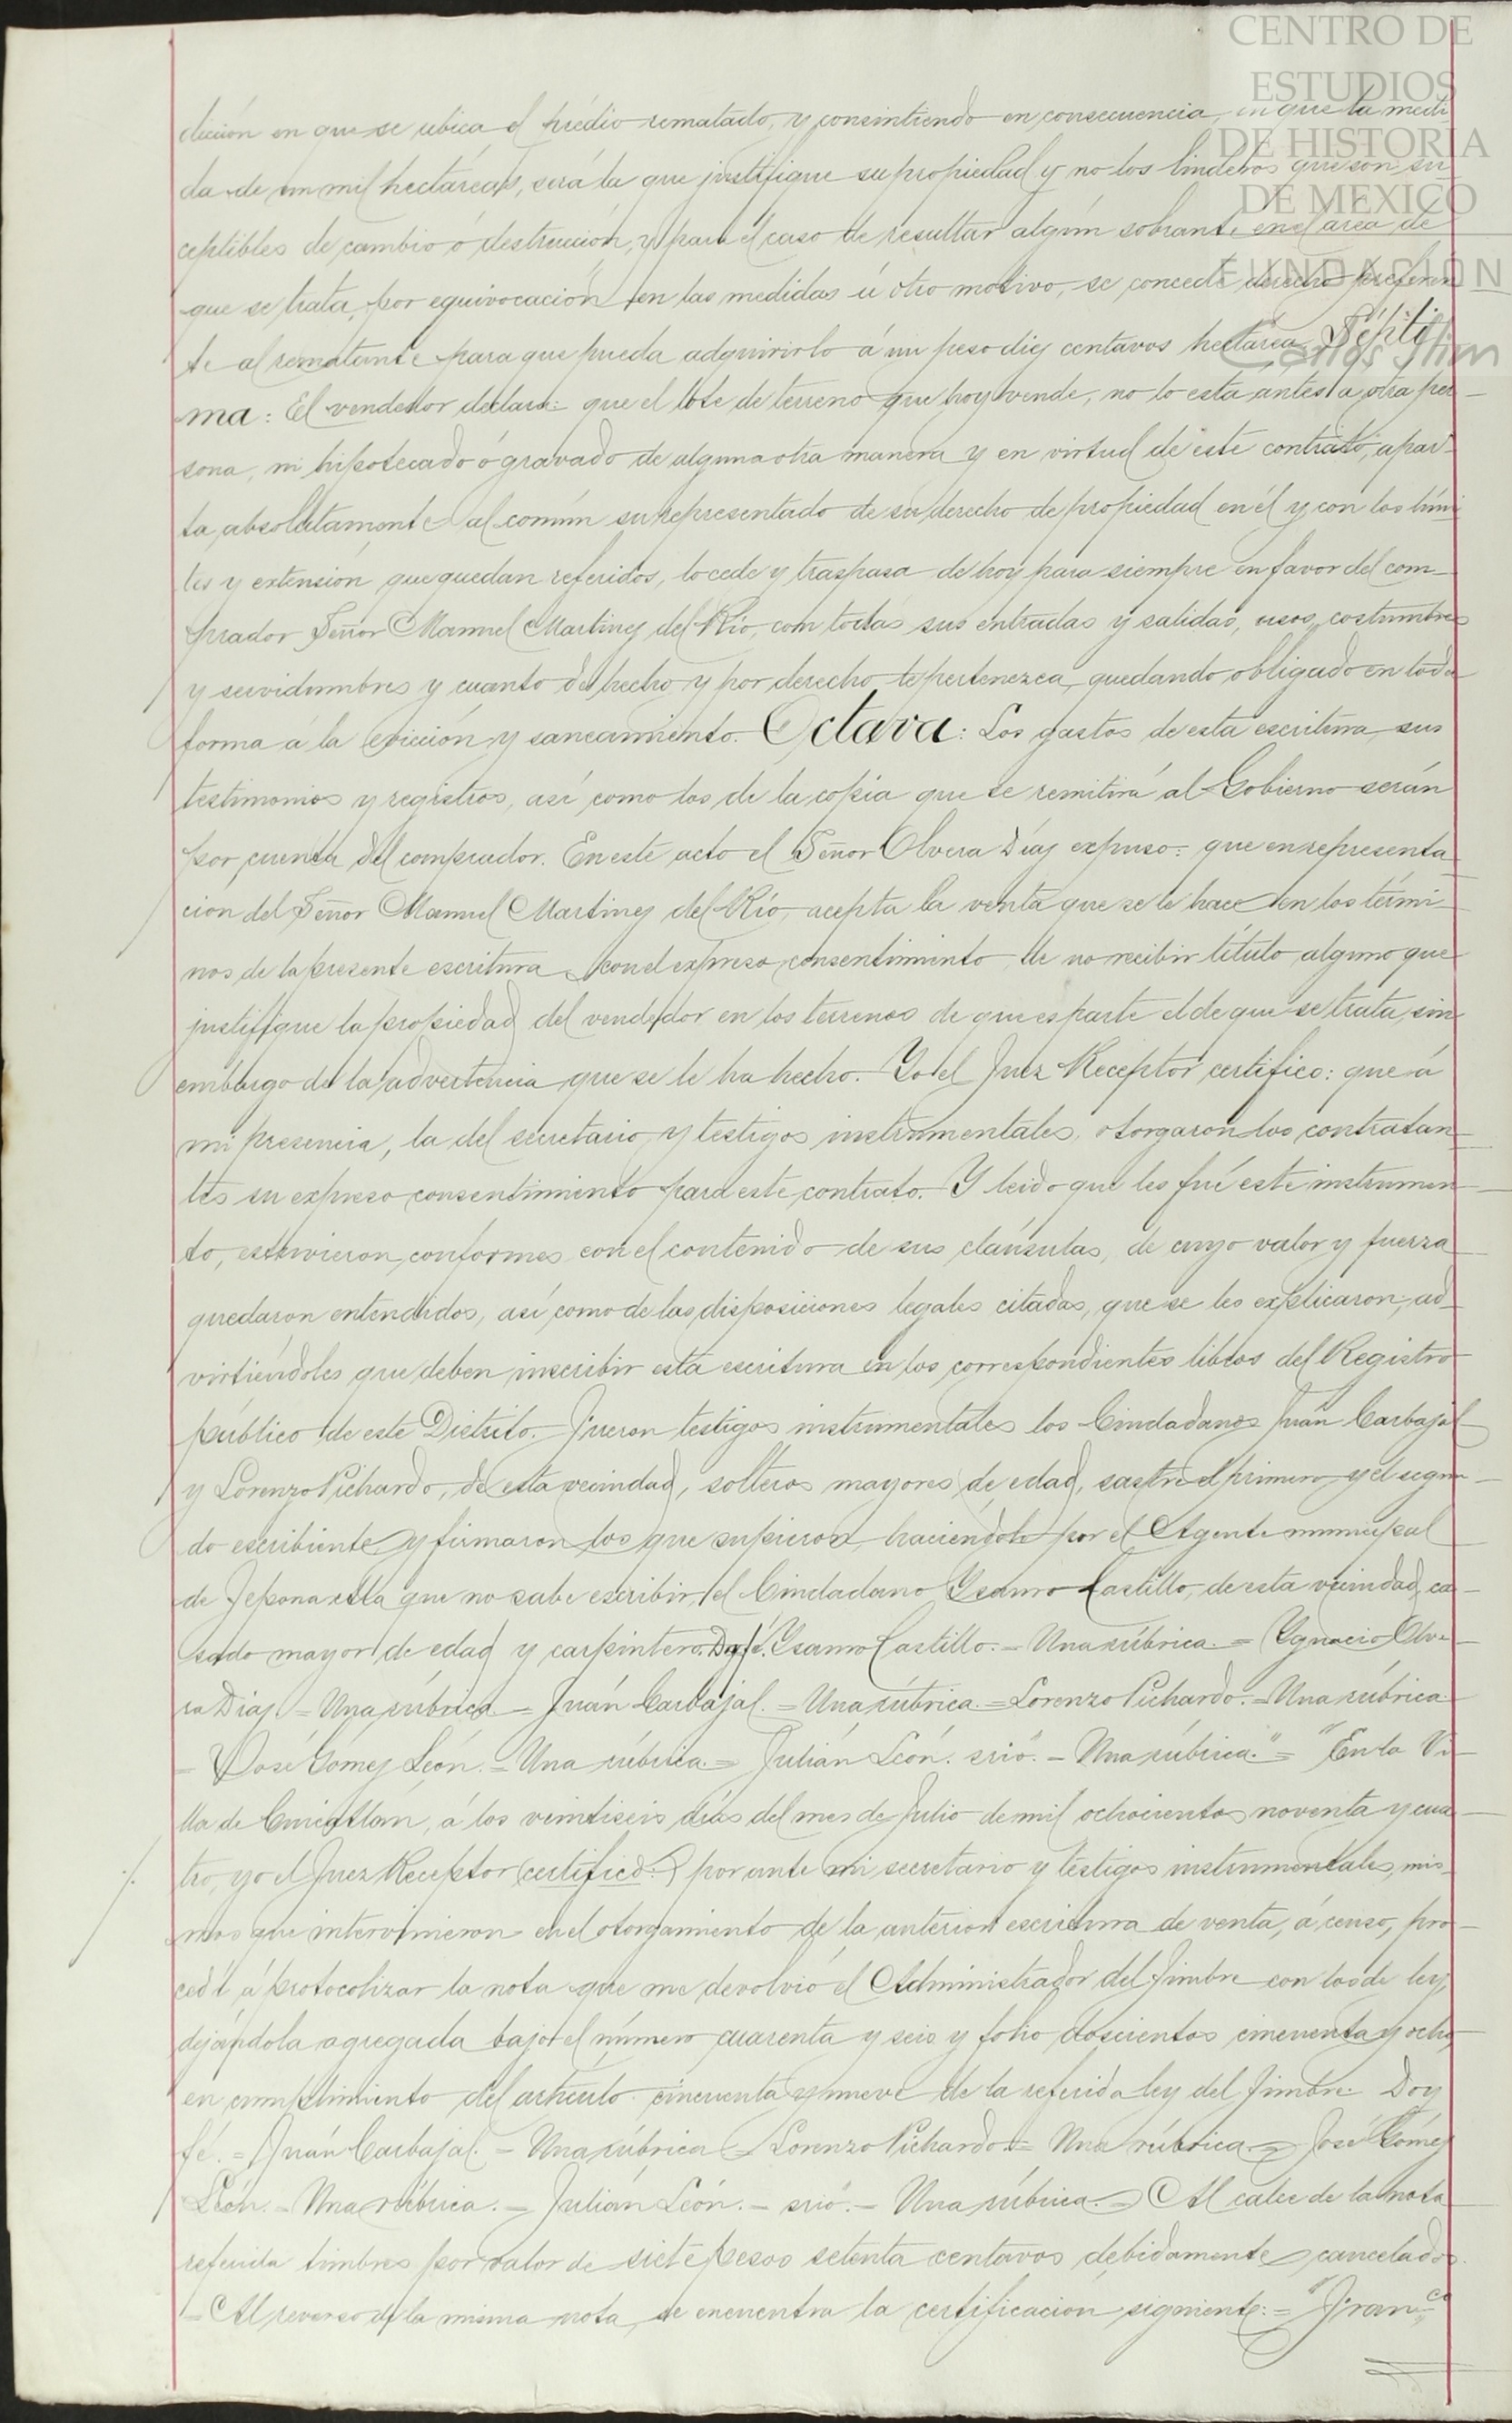 CENTRO DE
ESTUDIOS
DE HISTORIA
DE MEXICO
FUNDACIÓN
Carlos Slim
dicción en que se ubica el prédio rematado, y consintiendo en consecuencia, en que la medi-
da de un mil hectáreas, será la que justifique su propiedad y no los linderos que son su
ceptibles de cambio ó destrucción, y para el caso de resultar algún sobrante en el área de
que se trata, por equivocación en las medidas ú otro motivo, se concede derecho preferen
te al rematante para que pueda adquirirlo á un peso diez centavos hectárea. Sépti
ma: El vendedor declara: que el lote de terreno que hoy vende, no lo está antes a otra per-
sona, ni hipotecado ó gravado de alguna otra manera y en virtud de este contrato, apar-
ta absolutamente al común su representado de su derecho de propiedad en él y con los lími
tes y extensión que quedan referidos, lo cede y traspasa de hoy para siempre en favor del com-
prador Señor Manuel Martinez del Río, con todas sus entradas y salidas, usos, costumbres
y servidumbres y cuanto de hecho y por derecho le pertenezca, quedando obligado en toda
forma á la evicción y saneamiento. Octava: Los gastos de esta escritura, sus
testimonios y registros, así como los de la copia que se remitirá al Gobierno serán
por cuenta del comprador. En este acto el Señor Olvera Díaz expuso: que en representa-
cion del Señor Manuel Martinez del Río, acepta la venta que se le hace en los térmi-
nos de la presente escritura, con el expreso consentimiento de no recibir título alguno que
justifique la propiedad del vendedor en los terrenos de que es parte el de que se trata, sin
embargo de la advertencia que se le ha hecho. Yo el Juez Receptor certifico: que á
mi presencia, la del secretario y testigos instrumentales, otorgaron los contratan-
tes su expreso consentimiento para este contrato. Y leido que les fué este instrumen-
to, estuvieron conformes con el contenido de sus cláusulas, de cuyo valor y fuerza
quedaron entendidos, así como de las disposiciones legales citadas, que se les explicaron, ad-
virtiéndoles que deben inscribir esta escritura en los correspondientes libros del Registro
público de este Distrito. Fueron testigos instrumentales los Ciudadanos Juán Carbajal
y Lorenzo Pichardo, de esta vecindad, solteros mayores de edad, sastre el primero y el segun-
do escribiente y firmaron los que supieron, haciendolo por el Agente municipal
de que no sabe escribir, el Ciudadano Ysauro Castillo, de esta vecindad, ca-
sado mayor de edad y carpintero. Doy fé. Ysauro Castillo.= Una rúbrica.= Ygnacio Olve-
ra Díaz.= Una rúbrica.= Juán Carbajal.= Una rúbrica.= Lorenzo Pichardo.= Una rúbrica
= José Gómez León.= Una rúbrica.= Julián León. srió.- Una rúbrica."= "En la Vi-
lla de Cuicatlán, á los veintiseis días del mes de Julio de mil ochocientos noventa y cua-
tro, yo el Juez Receptor certifico: por ante mi secretario y testigos instrumentales, mis-
mos que intervinieron en el otorgamiento de la anterior escritura de venta, á censo, pro-
cedí á protocolizar la nota que me devolvió el Administrador del Timbre con los de ley,
dejándola agregada bajo el número cuarenta y seis y folio doscientos cincuenta y ocho,
en cumplimiento del artículo cincuenta y nueve de la referida ley del Timbre. Doy
fé.= Juán Carbajal.- Una rúbrica.= Lorenzo Pichardo.= Una rúbrica.= José Gómez
León.- Una rúbrica.= Julián León.- srió.- Una rúbrica.= Al calce de la nota
referida timbres por valor de siete pesos setenta centavos debidamente cancelados.
= Al reverso de la misma nota, se encuentra la certificacion siguiente:= "Fran.co